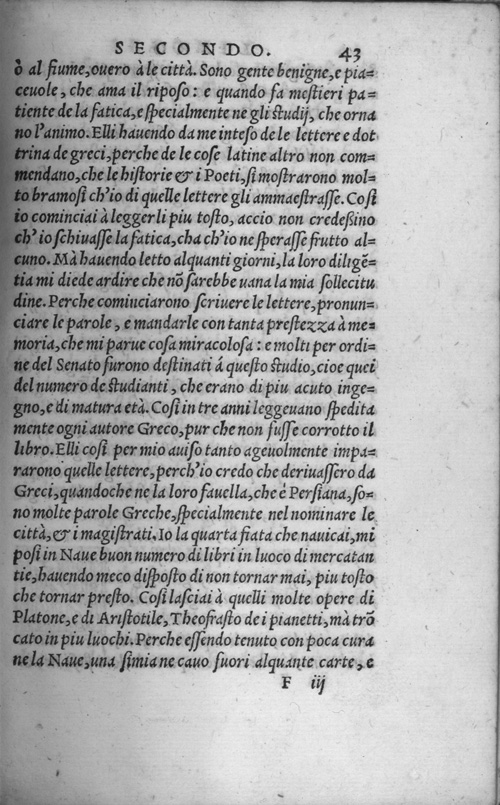 SECONDO. 43
ò al fiume, overo à le città. Sono gente benigne, e pia=
ceuole, che ama il riposo: e quando fa mestieri pa=
tiente de la fatica, e specialmente ne gli studij, che orna
no l'animo. Elli hauendo da me inteso de le lettere e dot
trina de greci, perche de le cose latine altro non com=
mendano, che le historie & i Poeti, si mostrarono mol=
to bramosi ch'io di quelle lettere gli ammaestrasse. Cosi
io cominciai à legger li piu tosto, accio non credeßino
ch'io schiuasse la fatica, cha ch'io ne sperasse frutto al=
cuno. Mà hauendo letto alquanti giorni, la loro diligẽ=
tia mi diede ardire che nõ sarebbe uana la mia sollecitu
dine. Perche cominciarono scriuere le lettere, pronun=
ciare le parole, e mandarle con tanta prestezza à me=
moria, che mi parue cosa miracolosa: e molti per ordi=
ne del Senato furono destinati á questo studio, cioe quei
del numero de studianti, che erano di piu acuto inge=
gno, e di matura età. Cosi in tre anni leggeuano spedita
mente ogni autore Greco, pur che non fusse corrotto il
libro. Elli cosi per mio auiso tanto ageuolmente impa=
rarono quelle lettere, perch'io credo che deriuassero da
Greci, quandoche ne la loro fauella, che é Persiana, so=
no molte parole Greche, specialmente nel nominare le
città, & i magistrati. Io la quarta fiata che nauicai, mi
posi in Naue buon numero di libri in luoco di mercatan
tie, hauendo meco disposto di non tornar mai, piu tosto
che tornar presto. Cosi lasciai à quelli molte opere di
Platone, e di Aristotile, Theofrasto de i pianetti, mà trõ
cato in piu luochi. Perche essendo tenuto con poca cura
ne la Naue, una simia ne cauo fuori alquante carte, e
F iij